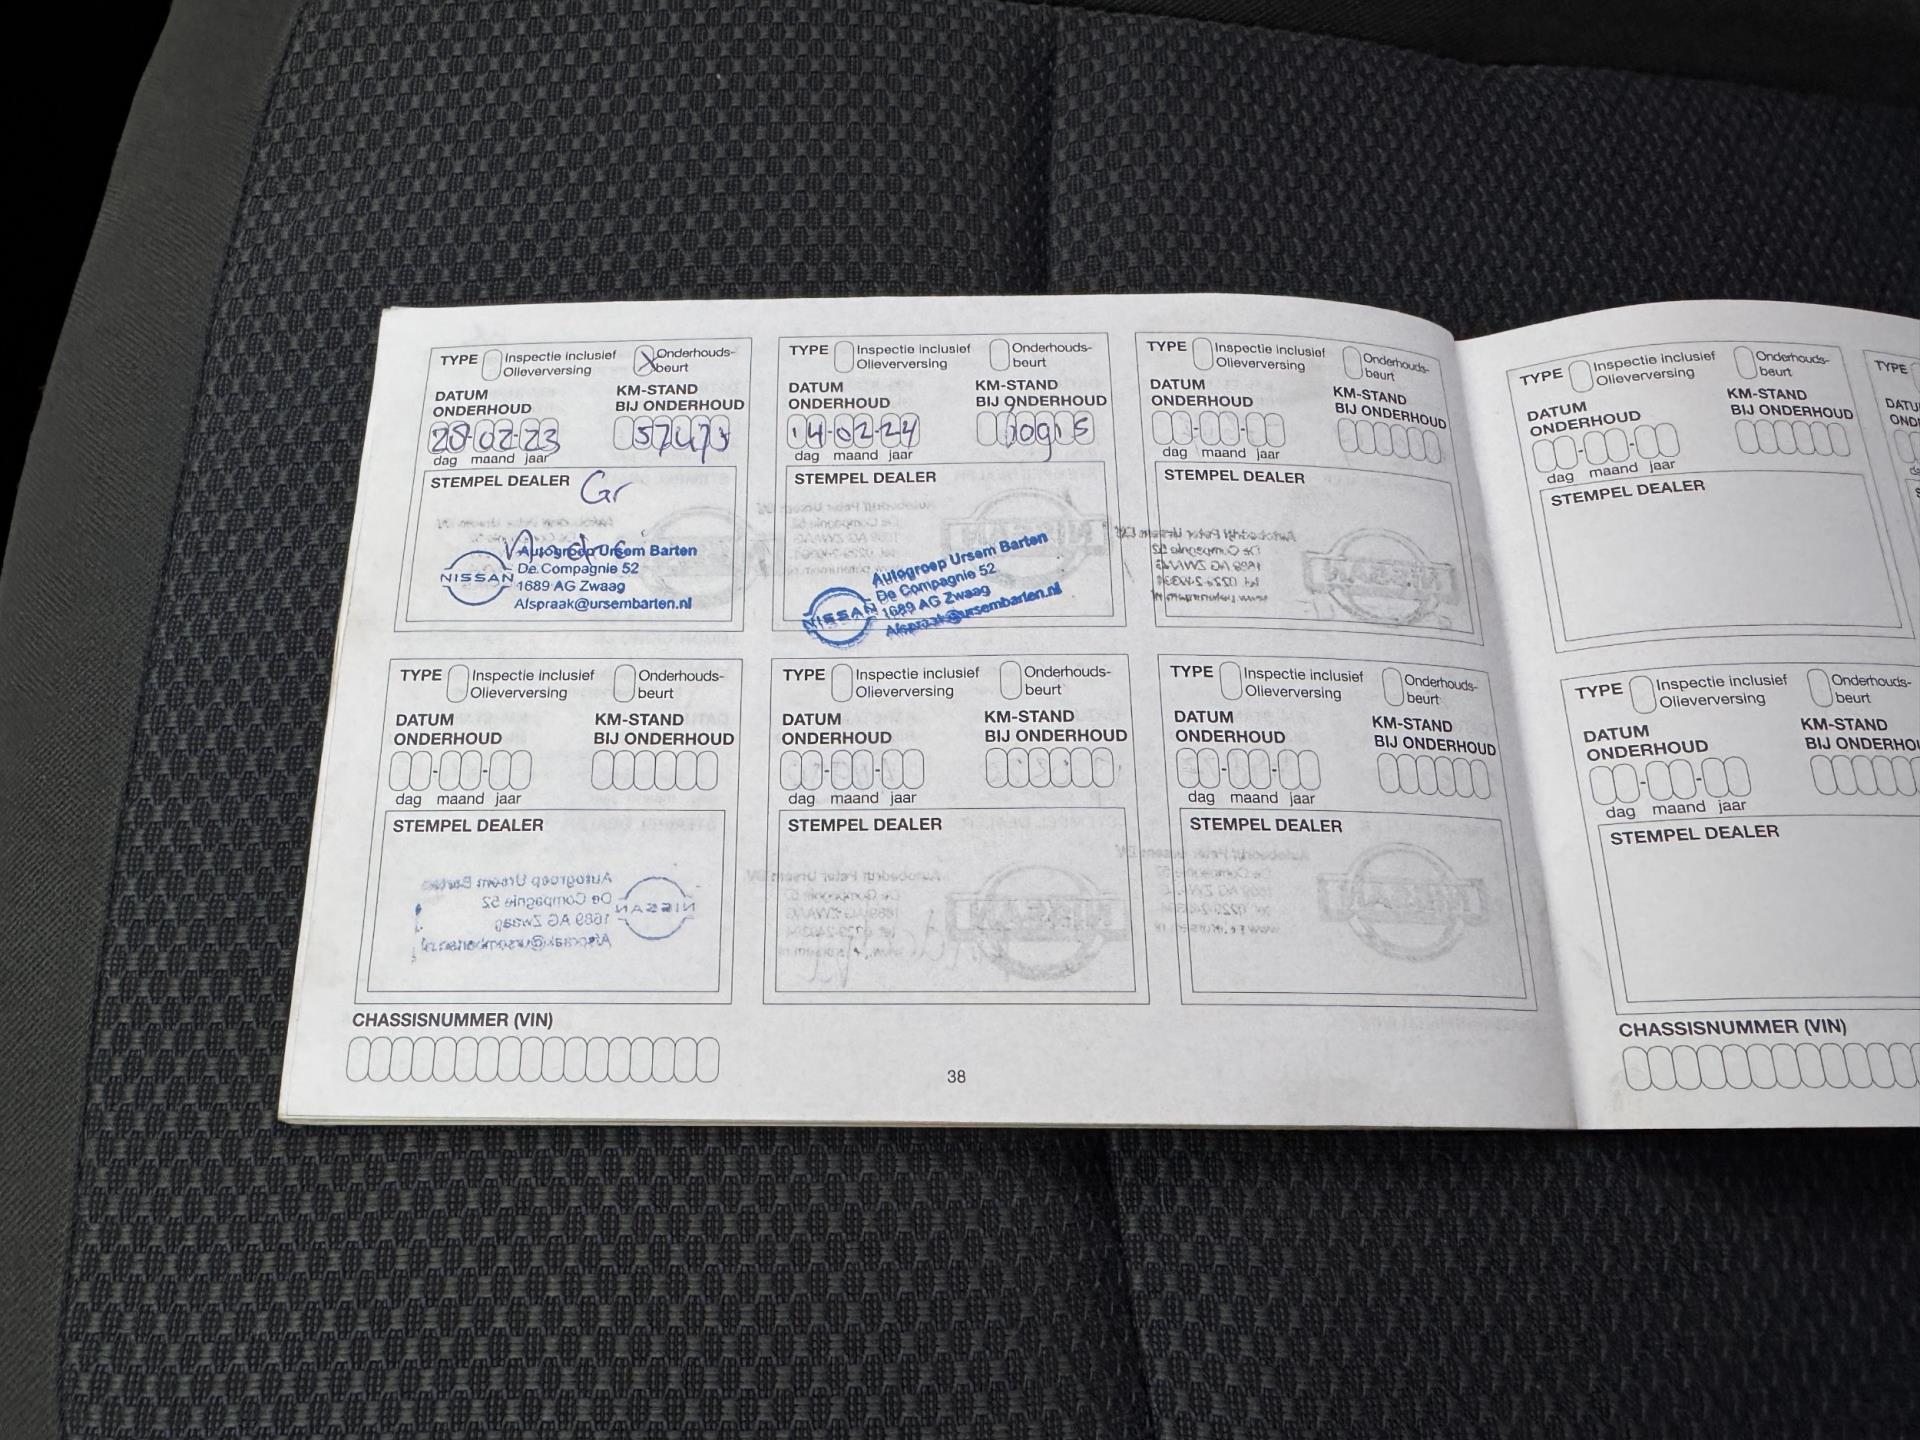 TYPE Inspectie inclusief Olieverversing X Onderhouds-beurt
DATUM ONDERHOUD KM-STAND BIJ ONDERHOUD
28-02-23
dag maand jaar
STEMPEL DEALER
Gr
Autogroep Ursem Barten
De Compagnie 52
NISSAN
1689 AG Zwaag
Afspraak@ursembarten.nl
TYPE Inspectie inclusief Olieverversing Onderhouds-beurt
DATUM ONDERHOUD KM-STAND BIJ ONDERHOUD
14-02-24
dag maand jaar
STEMPEL DEALER
Autogroep Ursem Barten
De Compagnie 52
NISSAN
1689 AG Zwaag
Afspraak@ursembarten.nl
TYPE Inspectie inclusief Olieverversing Onderhouds-beurt
DATUM ONDERHOUD KM-STAND BIJ ONDERHOUD
dag maand jaar
STEMPEL DEALER
TYPE Inspectie inclusief Olieverversing Onderhouds-beurt
DATUM ONDERHOUD KM-STAND BIJ ONDERHOUD
dag maand jaar
STEMPEL DEALER
TYPE Inspectie inclusief Olieverversing Onderhouds-beurt
DATUM ONDERHOUD KM-STAND BIJ ONDERHOUD
dag maand jaar
STEMPEL DEALER
TYPE Inspectie inclusief Olieverversing Onderhouds-beurt
DATUM ONDERHOUD KM-STAND BIJ ONDERHOUD
dag maand jaar
STEMPEL DEALER
CHASSISNUMMER (VIN)
38
TYPE Inspectie inclusief Olieverversing Onderhouds-beurt
DATUM ONDERHOUD KM-STAND BIJ ONDERHOUD
dag maand jaar
STEMPEL DEALER
TYPE
TYPE Inspectie inclusief Olieverversing Onderhouds-beurt
DATUM ONDERHOUD KM-STAND BIJ ONDERHO
dag maand jaar
STEMPEL DEALER
CHASSISNUMMER (VIN)